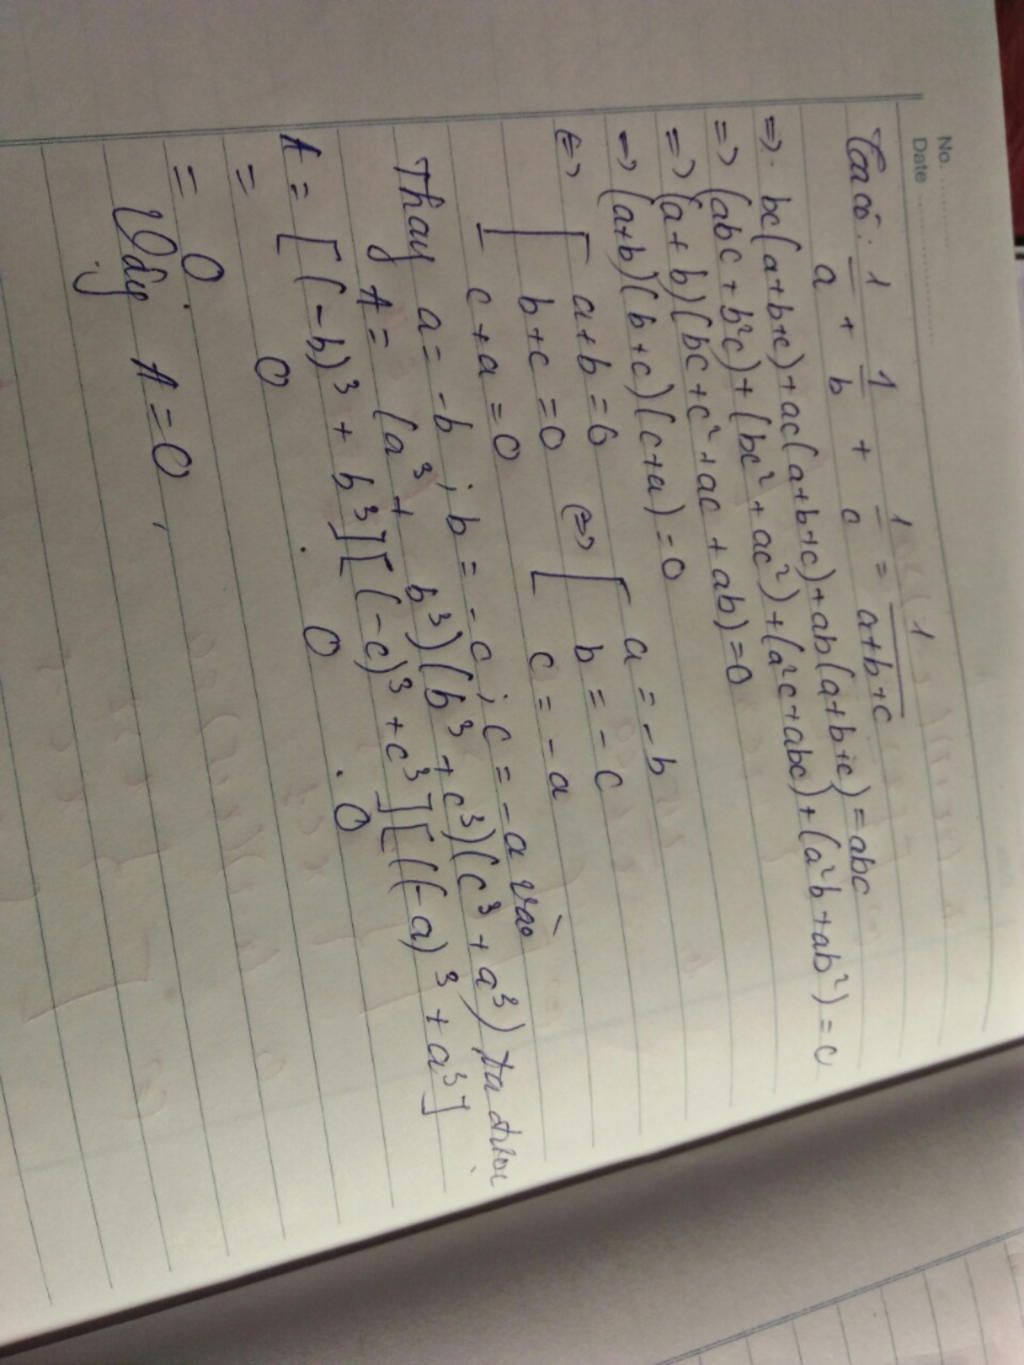 No.
Date
Ta có: 1/a + 1/b + 1/c = 1/a+b+c
=> bc(a+b+c)+ac(a+b+c)+ab(a+b+c)=abc
=> (abc+b²c)+(bc²+ac²)+(a²c+abc)+(a²b+ab²)=c
=> (a+b)(bc+c²+ac+ab)=0
=> (a+b)(b+c)(c+a)=0
<=> [ a+b=0 <=> [ a=-b
b+c=0 b=-c
c+a=0 c=-a
Thay a=-b; b=-c; c=-a vào
A= (a³+b³)(b³+c³)(c³+a³) ta được
A= [(-b)³+b³][(-c)³+c³][(-a)³+a³]
= 0 . 0 . 0
= 0.
Vậy A=0,